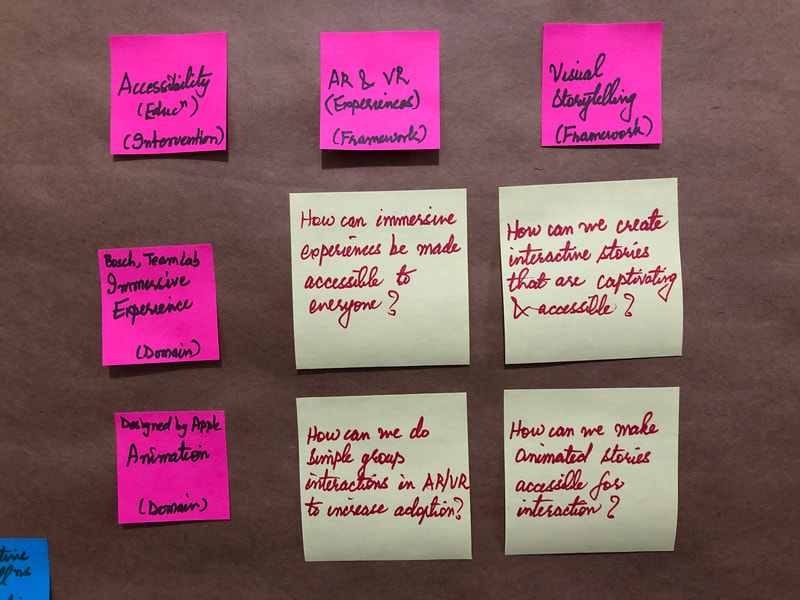 Accessibility
(Educⁿ)
(Intervention)
AR & VR
(Experiences)
(Framework)
Visual
Storytelling
(Framework)
Bosch, TeamLab
Immersive
Experience
(Domain)
How can immersive
experiences be made
accessible to
everyone?
How can we create
interactive stories
that are captivating
& accessible?
Designed by Apple
Animation
(Domain)
How can we do
simple group
interactions in AR/VR
to increase adoption?
How can we make
animated stories
accessible for
interaction?